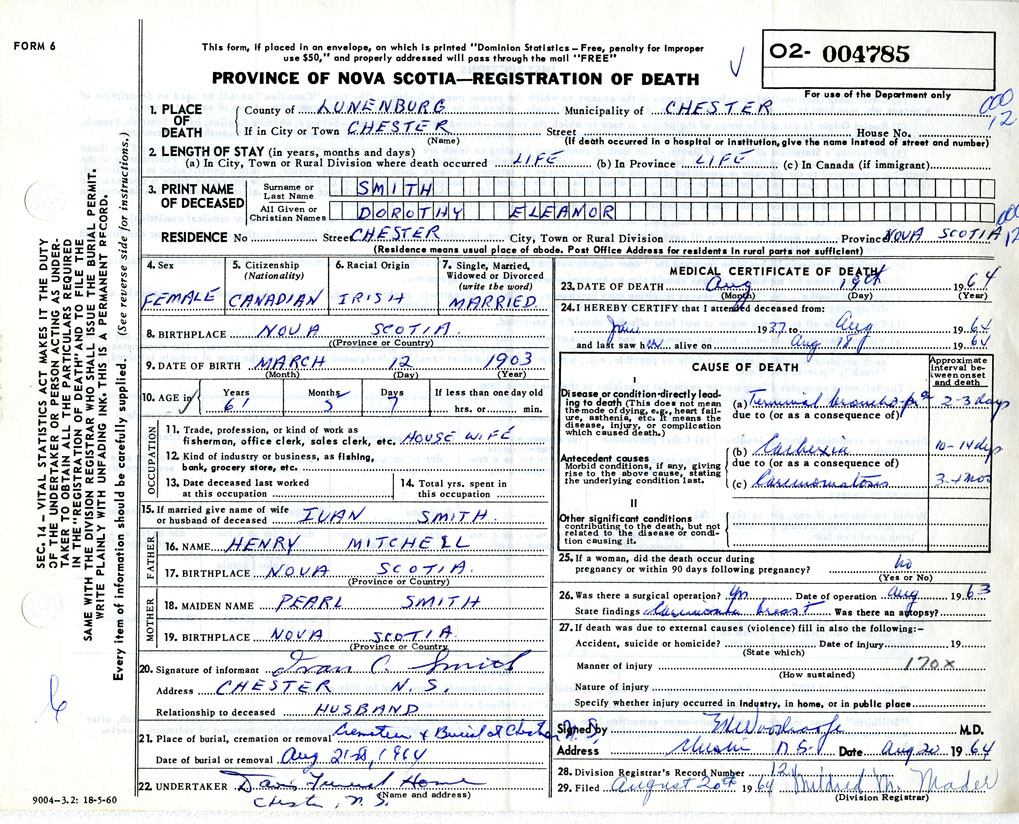 FORM 6
This form, if placed in an envelope, on which is printed "Dominion Statistics – Free, penalty for improper
use $50," and properly addressed will pass through the mail "FREE"
PROVINCE OF NOVA SCOTIA—REGISTRATION OF DEATH
O2- 004785
For use of the Department only
000
12
1. PLACE OF DEATH
County of LUNENBURG Municipality of CHESTER
If in City or Town CHESTER Street House No.
(Name) (If death occurred in a hospital or institution, give the name instead of street and number)
2. LENGTH OF STAY (in years, months and days)
(a) In City, Town or Rural Division where death occurred LIFE (b) In Province LIFE (c) In Canada (if immigrant)
3. PRINT NAME OF DECEASED
Surname or Last Name SMITH
All Given or Christian Names DOROTHY ELEANOR
000
12
RESIDENCE No Street CHESTER City, Town or Rural Division Province NOVA SCOTIA
(Residence means usual place of abode. Post Office Address for residents in rural parts not sufficient)
SEC. 14 – VITAL STATISTICS ACT MAKES IT THE DUTY
OF THE UNDERTAKER OR PERSON ACTING AS UNDER-
TAKER TO OBTAIN ALL THE PARTICULARS REQUIRED
IN THE "REGISTRATION OF DEATH" AND TO FILE THE
SAME WITH THE DIVISION REGISTRAR WHO SHALL ISSUE THE BURIAL PERMIT.
WRITE PLAINLY WITH UNFADING INK. THIS IS A PERMANENT RECORD.
Every item of information should be carefully supplied. (See reverse side for instructions.)
4. Sex
FEMALE
5. Citizenship
(Nationality)
CANADIAN
6. Racial Origin
IRISH
7. Single, Married,
Widowed or Divorced
(write the word)
MARRIED
8. BIRTHPLACE NOVA SCOTIA.
(Province or Country)
9. DATE OF BIRTH MARCH 12 1903
(Month) (Day) (Year)
10. AGE in Years Months Days If less than one day old
61 5 7 hrs. or min.
OCCUPATION
11. Trade, profession, or kind of work as
fisherman, office clerk, sales clerk, etc. HOUSE WIFE
12. Kind of industry or business, as fishing,
bank, grocery store, etc.
13. Date deceased last worked
at this occupation
14. Total yrs. spent in
this occupation
15. If married give name of wife
or husband of deceased IVAN SMITH.
FATHER
16. NAME HENRY MITCHELL
17. BIRTHPLACE NOVA SCOTIA.
(Province or Country)
MOTHER
18. MAIDEN NAME PEARL SMITH
19. BIRTHPLACE NOVA SCOTIA.
(Province or Country)
20. Signature of informant Ivan C. Smith
Address CHESTER N.S.
Relationship to deceased HUSBAND
21. Place of burial, cremation or removal & Burial at Chester N.S.
Date of burial or removal Aug 21st, 1964
22. UNDERTAKER Davis Funeral Home
(Name and address)
Chester, N.S.
9004-3.2: 18-5-60
MEDICAL CERTIFICATE OF DEATH
23. DATE OF DEATH Aug 19th 1964
(Month) (Day) (Year)
24. I HEREBY CERTIFY that I attended deceased from:
1937 to Aug 1964
and last saw her alive on Aug 18 1964
CAUSE OF DEATH
Approximate
interval between
onset
and death
I
Disease or condition directly lead-
ing to death (This does not mean
the mode of dying, e.g., heart fail-
ure, asthenia, etc. It means the
disease, injury, or complication
which caused death.)
(a) Terminal 2-3 days
due to (or as a consequence of)
Antecedent causes
Morbid conditions, if any, giving
rise to the above cause, stating
the underlying condition last.
(b) Cachexia 10-14 days
due to (or as a consequence of)
(c) Carcinomatosis 3-4 mos
II
Other significant conditions
contributing to the death, but not
related to the disease or condi-
tion causing it.
25. If a woman, did the death occur during
pregnancy or within 90 days following pregnancy? No
(Yes or No)
26. Was there a surgical operation? Yes Date of operation Aug 1963
State findings Carcinoma breast Was there an autopsy?
27. If death was due to external causes (violence) fill in also the following:–
Accident, suicide or homicide? Date of injury 19
(State which)
Manner of injury 170X
(How sustained)
Nature of injury
Specify whether injury occurred in industry, in home, or in public place
Signed by M.D.
Address N.S. Date Aug 20 1964
28. Division Registrar's Record Number 12
29. Filed August 20th 1964 Mildred M. Mader
(Division Registrar)